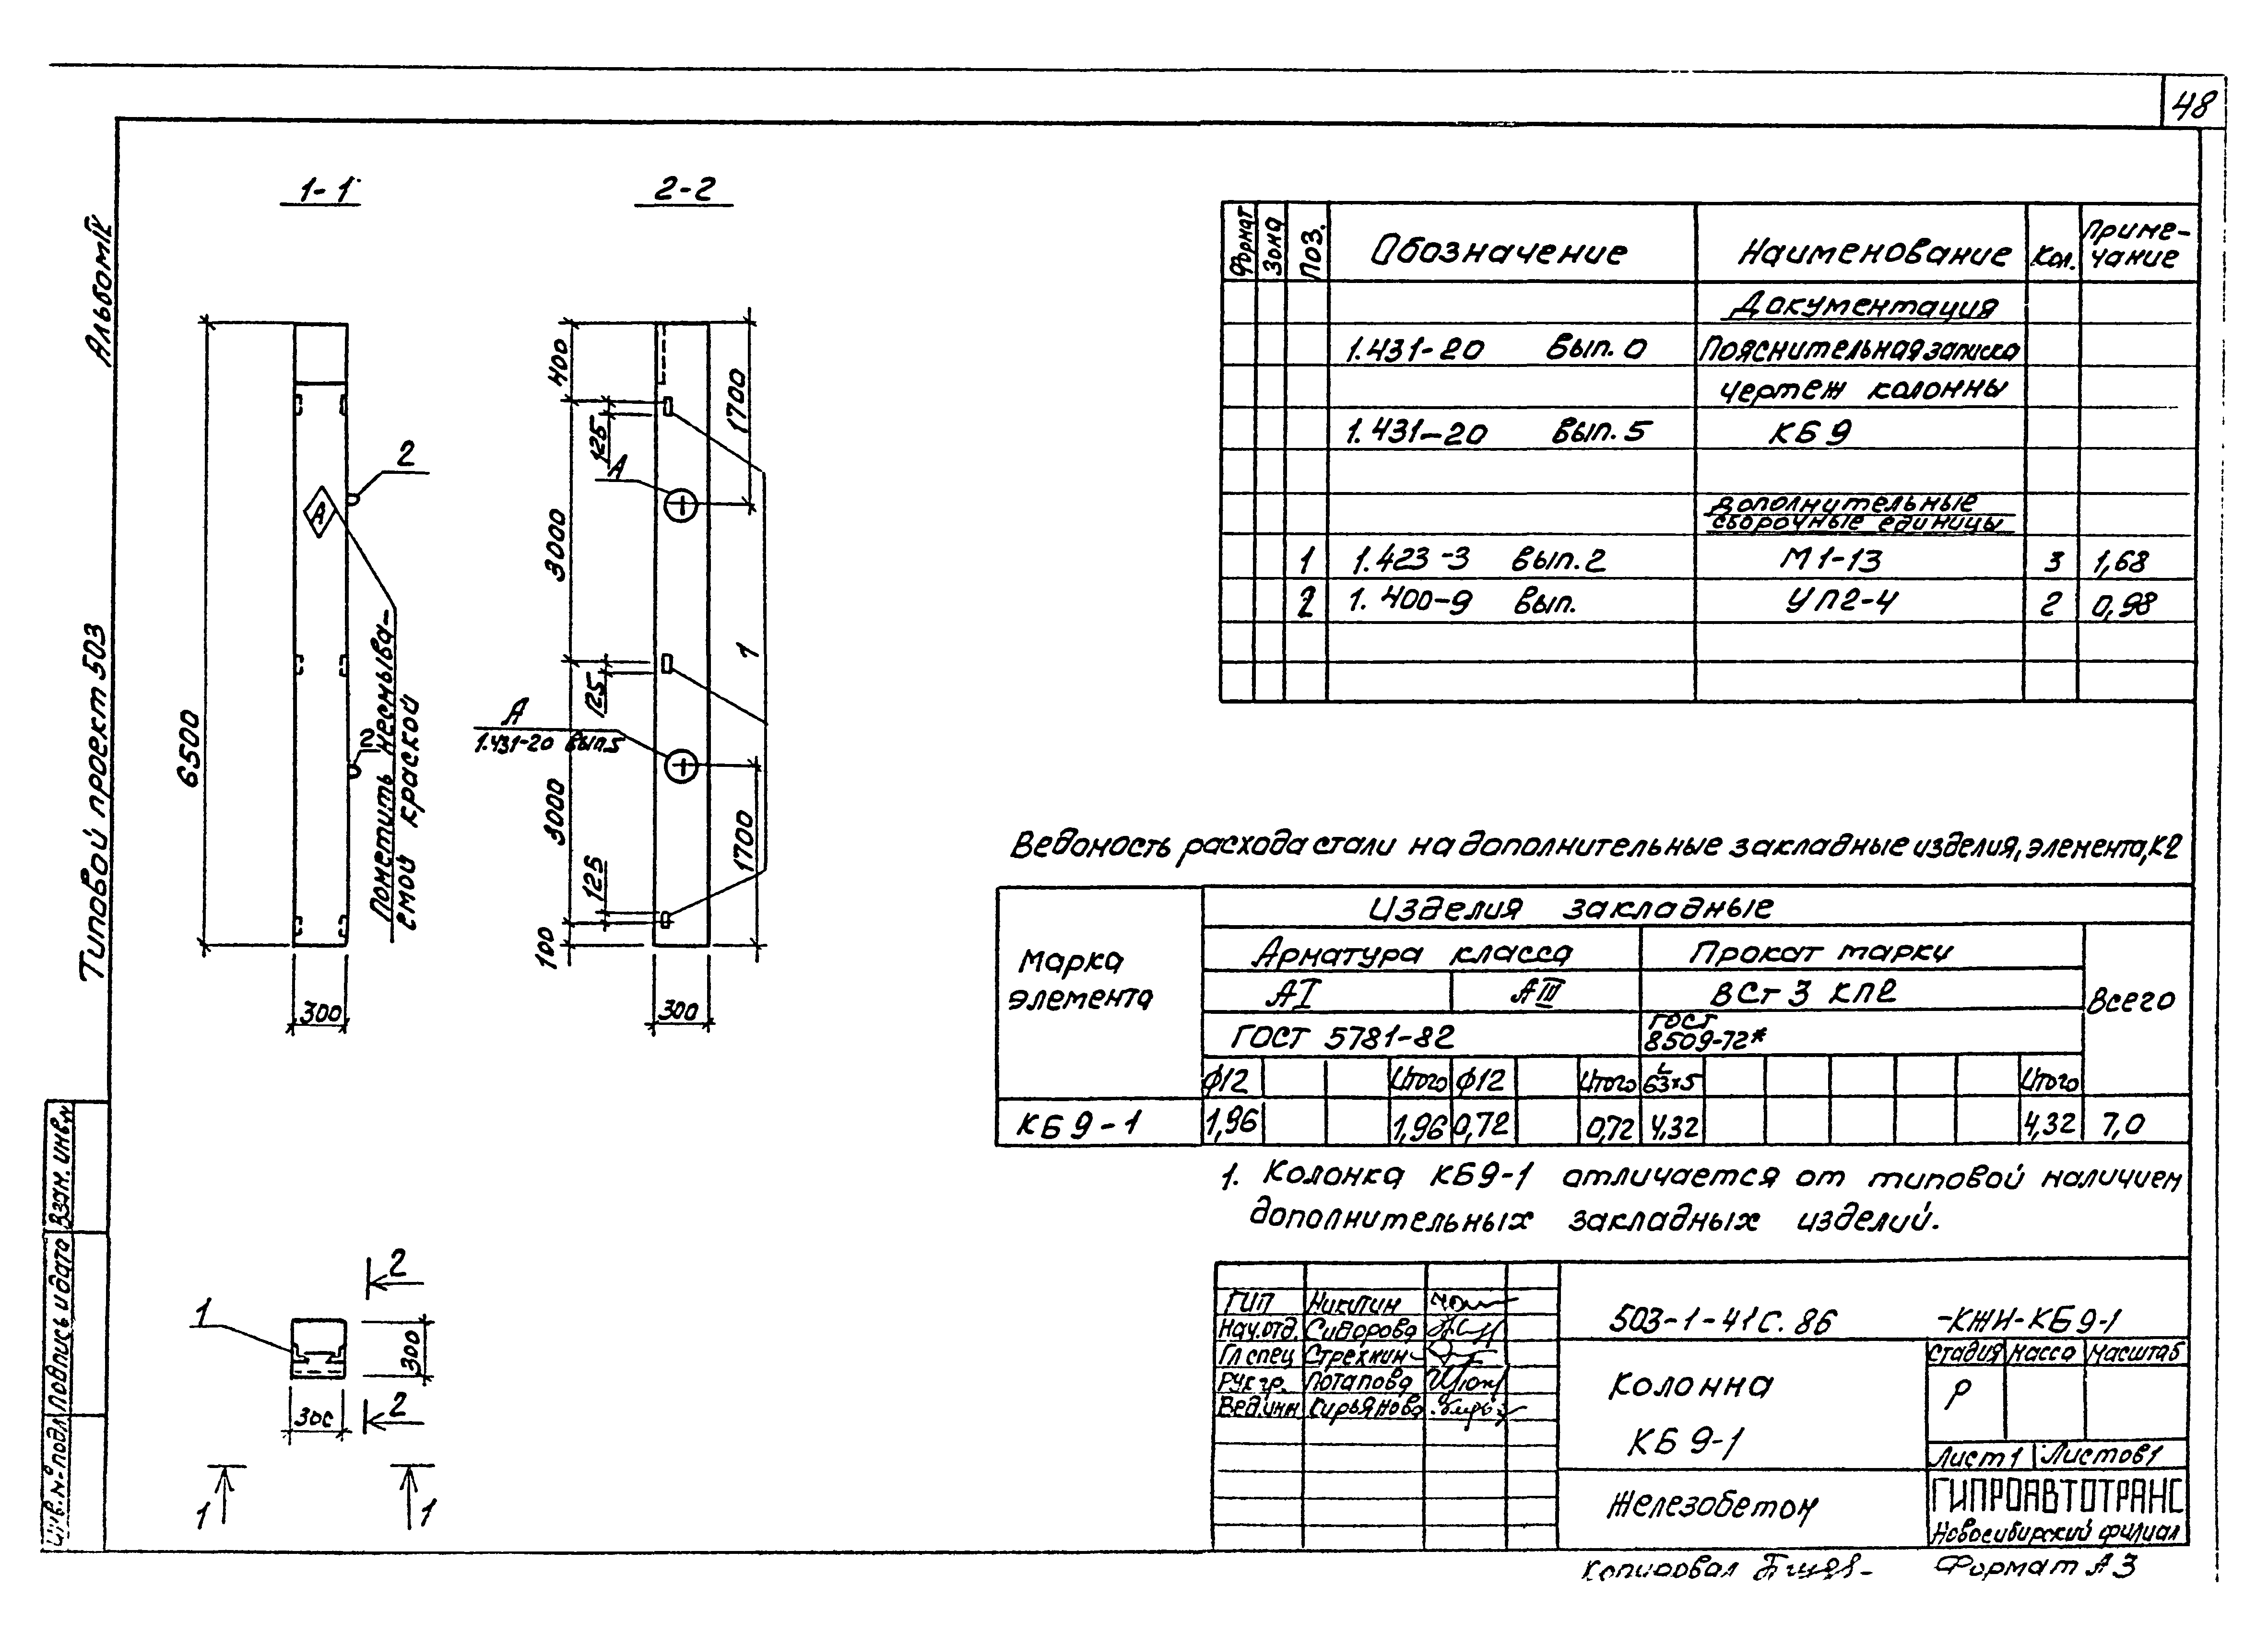 48
Альбом IV
Типовой проект 503
Взам. инв. н
Подпись и дата
Инв. № подл.
1-1
2-2
6500
300
2
2
А
Пометить несмыва-
емой краской
400
125
3000
125
3000
125
100
1700
1700
А
А
1.431-20 вып.5
1
300
1
2
2
300
300
1
1
Формат
Зона
Поз.
Обозначение
Наименование
Кол.
Приме-
чание
Документация
1.431-20 Вып. 0 Пояснительная записка
чертеж колонны
1.431-20 Вып. 5 КБ 9
Дополнительные
сборочные единицы
1 1.423-3 Вып. 2 М1-13 3 1,68
2 1.400-9 Вып. УП2-4 2 0,98
Ведомость расхода стали на дополнительные закладные изделия, элемента, кг
Марка
элемента
Изделия закладные
Арматура класса
Прокат марки
АI АIII ВСт 3 КП2
Всего
ГОСТ 5781-82
ГОСТ
8509-72*
ф12 Итого ф12 Итого L 63x5 Итого
КБ 9-1 1,96 1,96 0,72 0,72 4,32 4,32 7,0
1. Колонка КБ9-1 отличается от типовой наличием
дополнительных закладных изделий.
ГИП Никитин
Нач.отд. Сидорова
Гл спец Стрехнин
Рук гр. Потапова
Вед.инн Кирьянова
503-1-41С.86 -КЖИ-КБ9-1
Колонна
КБ 9-1
Стадия Масса Масштаб
Р
Лист 1 Листов 1
Железобетон
ГИПРОАВТОТРАНС
Новосибирский филиал
Копировал
Формат А3